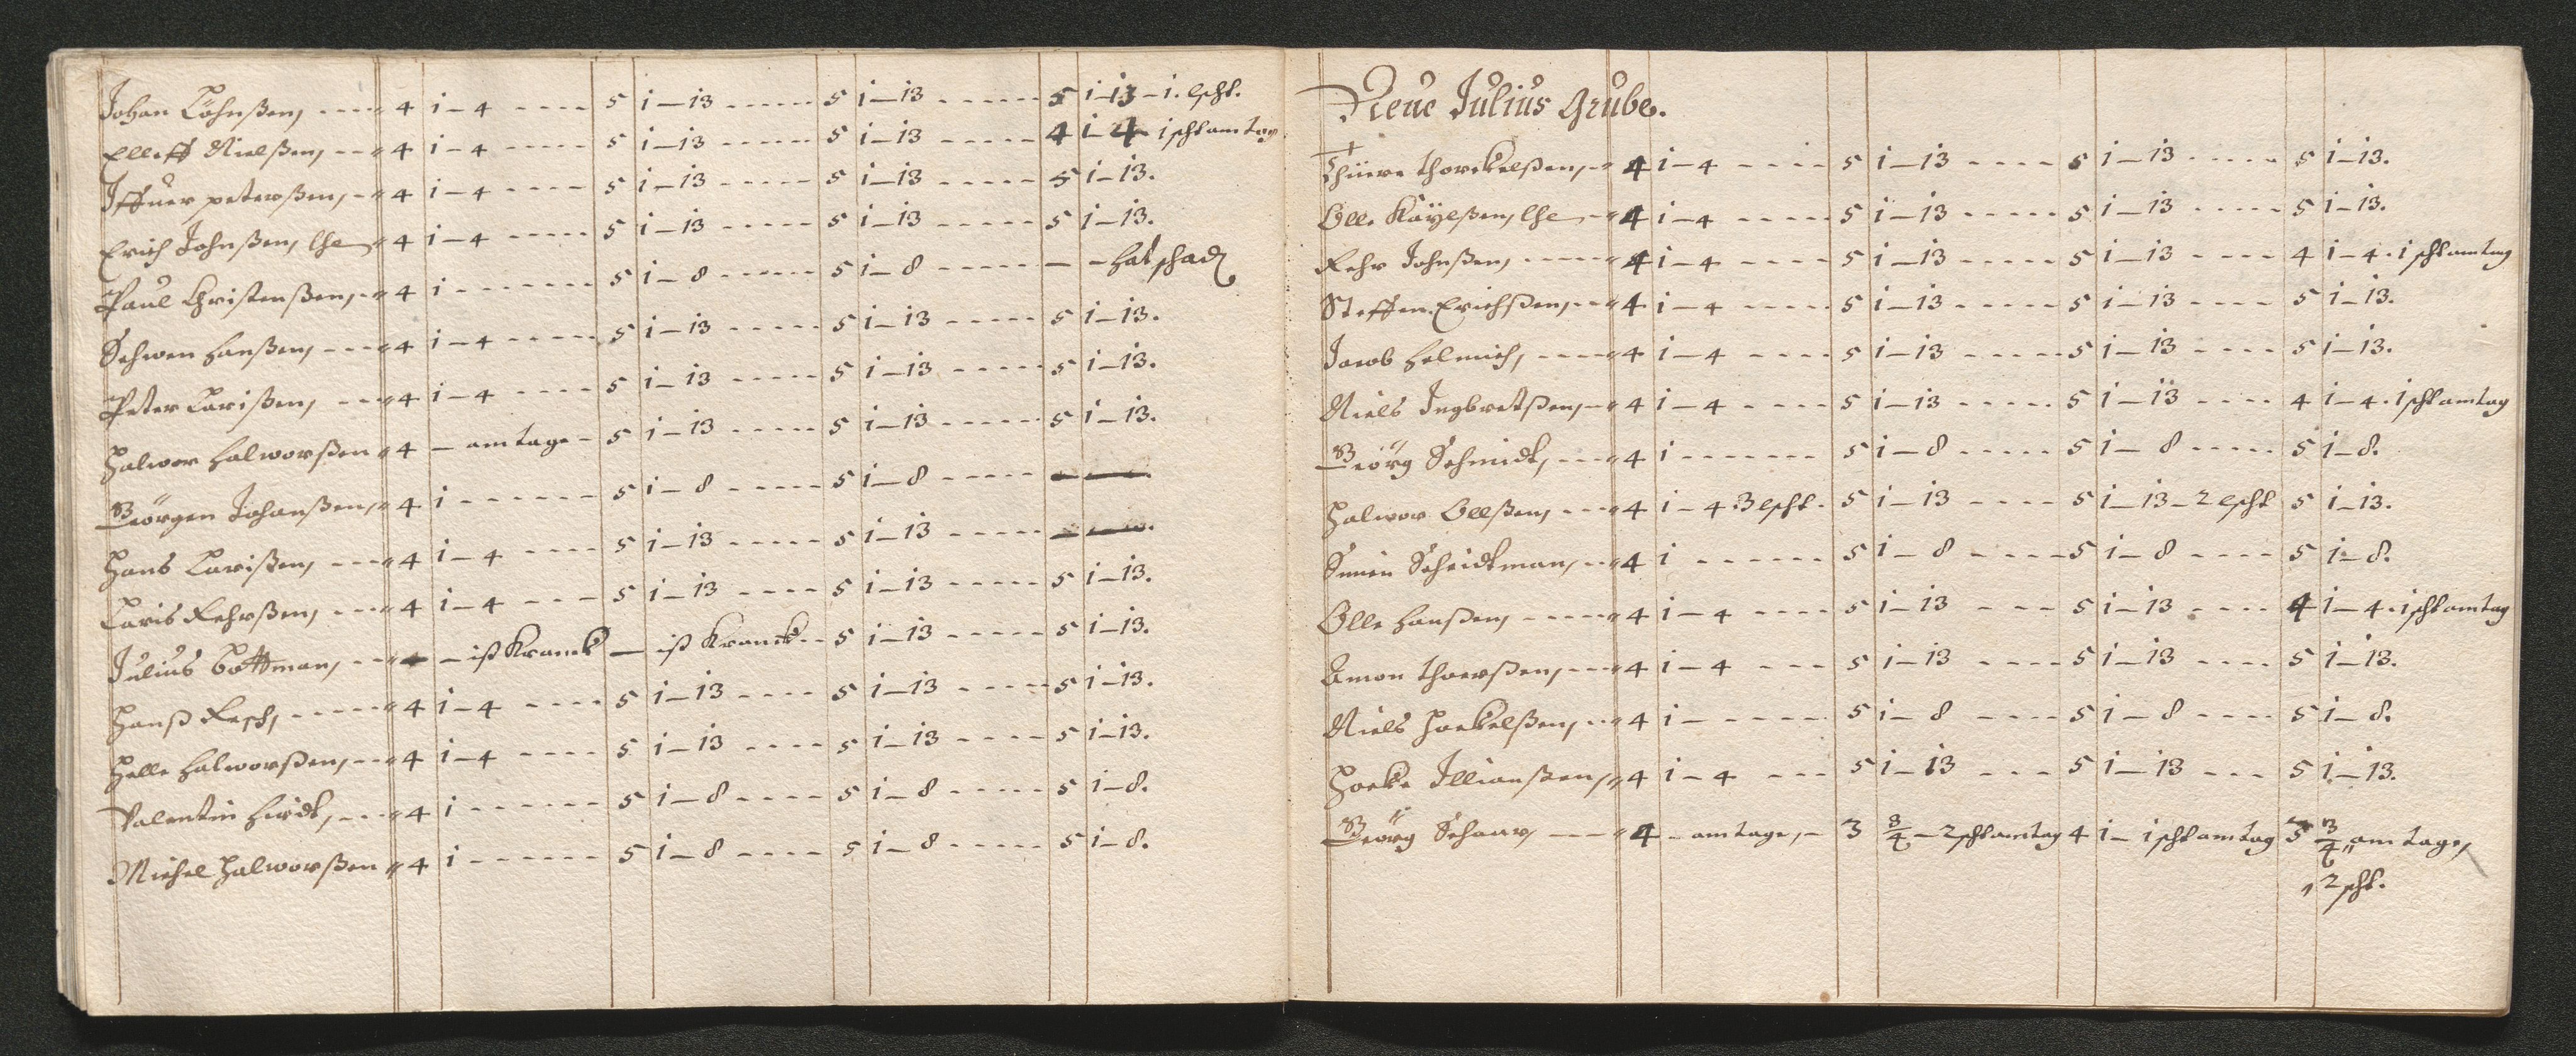 Johan Cöhnßen, ---- 4 i-4 ---- 5 i-13 ----- 5 i-13 ----- 5 i-13-i. lscht.
Elleff Nielßen, --- 4 i-4 ----- 5 i-13 ----- 5 i-13 ----- 4 i-4 ischt am tag
Iffuer peterßen, -- 4 i-4 ---- 5 i-13 ----- 5 i-13 ----- 5 i-13.
Erich Johnßen, lhe 4 i-4 ----- 5 i-13 ----- 5 i-13 ----- 5 i-13.
Paul Christenßen, -- 4 i ------- 5 i-8 ----- 5 i-8 ----- - - hat schadē
Schwen hanßen, --- 4 i-4 ----- 5 i-13 ----- 5 i-13 ----- 5 i-13.
Peter Larißen, --- 4 i-4 ---- 5 i-13 ----- 5 i-13 ----- 5 i-13.
Halwor halworßen 4 - am tage - 5 i-13 ----- 5 i-13 ----- 5 i-13.
Geörgen Johanßen, 4 i ------ 5 i-8 ----- 5 i-8 ----- - -
Hans Larißen, --- 4 i-4 ---- 5 i-13 ----- 5 i-13 ----- - -
Laris Fehrßen, --- 4 i-4 --- 5 i-13 ---- 5 i-13 ----- 5 i-13.
Julius bottman, -- - ist Kranck - ist Kranck -- 5 i-13 ----- 5 i-13.
Hanß Resch, ----- 4 i-4 ---- 5 i-13 ---- 5 i-13 ----- 5 i-13.
Helle halworßen, -- 4 i-4 ---- 5 i-13 ---- 5 i-13 ---- 5 i-13.
Valentin hirdt, --- 4 i ------ 5 i-8 ---- 5 i-8 ----- 5 i-8.
Michel Halworßen 4 i ------ 5 i-8 ---- 5 i-8 ----- 5 i-8.
Neue Julius Grube.
Thorckelßen, - 4 i-4 ---- 5 i-13 ---- 5 i-13 ----- 5 i-13.
Olle Käyelßen, lhe - 4 i-4 ----- 5 i-13 ----- 5 i-13 ----- 5 i-13.
Fehr Johnßen, ----- 4 i-4 ---- 5 i-13 ----- 5 i-13 ---- 4 i-4. i scht am tag
Steffen Erichßen, -- 4 i-4 ----- 5 i-13 ----- 5 i-13 ---- 5 i-13.
Jacob helmich, ---- 4 i-4 ---- 5 i-13 ----- 5 i-13 ---- 5 i-13.
Niels Ingbretßen, - 4 i-4 ---- 5 i-13 ----- 5 i-13 ---- 4 i-4. i scht am tag
Geörg Schmidt, --- 4 i ------- 5 i-8 ----- 5 i-8 ----- 5 i-8.
Halwor Olleßen, --- 4 i-4 3 lscht. 5 i-13 ---- 5 i-13-2 lscht 5 i-13.
Simen Scheidtman, -- 4 i ------ 5 i-8 ----- 5 i-8 ---- 5 i-8.
Olle hanßen, ----- 4 i-4 ---- 5 i-13 --- 5 i-13 ---- 4 i-4. i scht am tag
Amon thoerßen, --- 4 i-4 --- 5 i-13 ---- 5 i-13 ---- 5 i-13.
Niels Joekelßen, -- 4 i- ----- 5 i-8 ---- 5 i-8 ---- 5 i-8.
Hoeke Illianßen, 4 i-4 --- 5 i-13 --- 5 i-13 --- 5 i-13.
Geörg Schaar, --- 4 - am tage, - 3 3/4 - 2 scht am tag 4 i - i scht am tag 3 3/4 am tage,
2 scht.